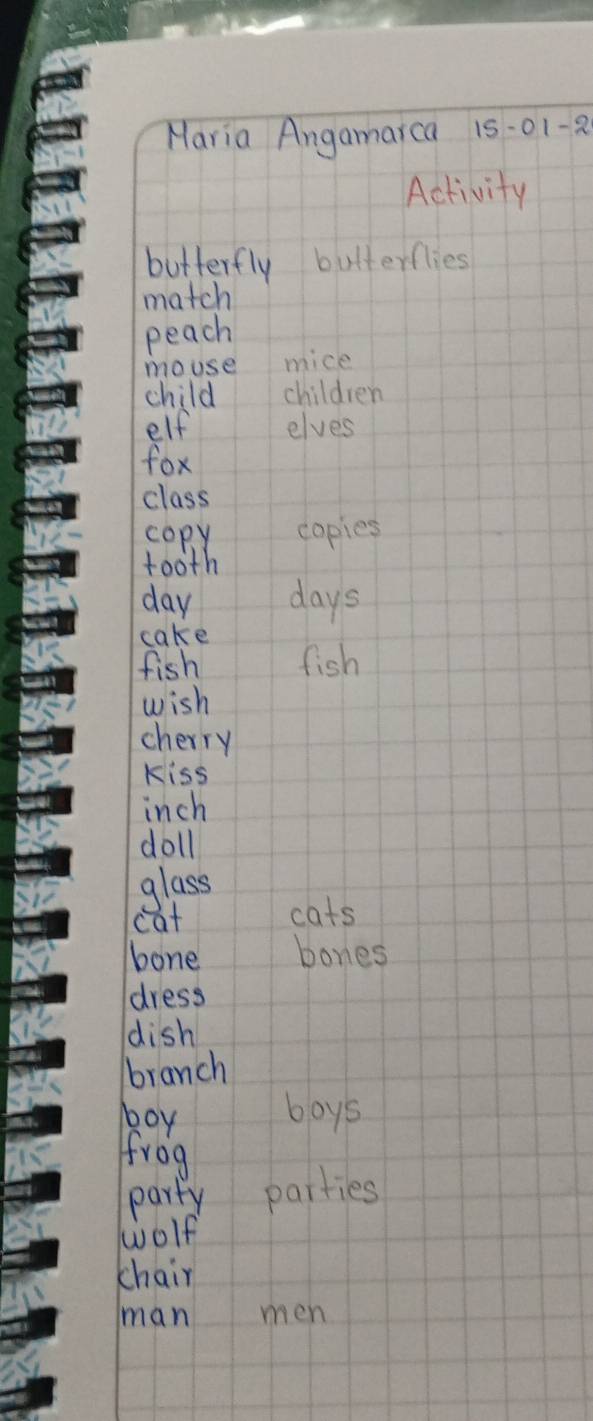 Maria Angamarca 15-01-2
Activity
butterfly butterflies
match
peach
mouse mice
child children
elf elves
fox
class
copy copies
tooth
day days
cake
fish fish
wish
cherry
kiss
inch
doll
glass
cat cats
bone bones
dress
dish
branch
boy boys
frog
party parties
wolf
chair
man men